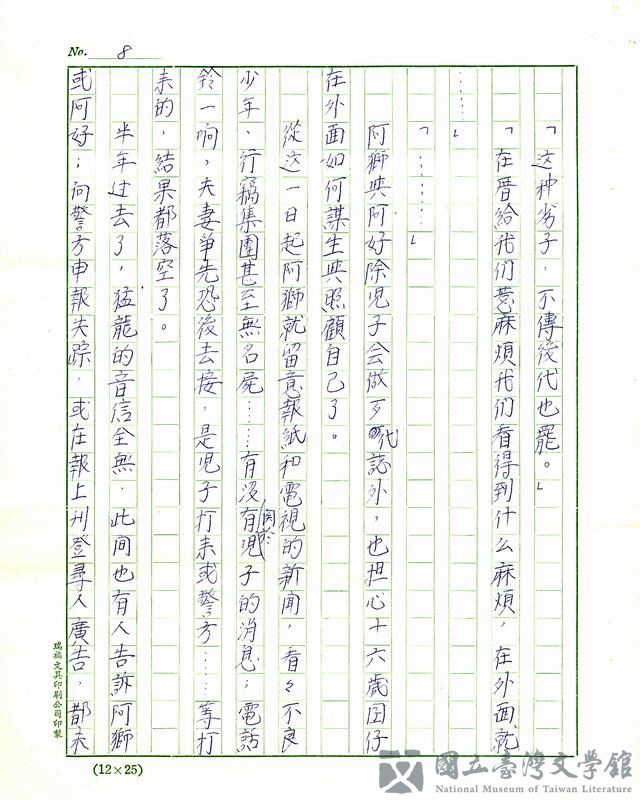 No. 8
「这种劣子，不傳後代也罷。」
「在厝給我们惹麻煩我们看得到什么麻煩，在外面就
……」
「……」
阿獅与阿好除児子会做歹代誌外，也担心十六歲囝仔
在外面如何謀生与照顧自己了。
從这一日起阿獅就留意報紙和電視的新闻，看々不良
少年、行竊集團甚至無名屍……有没有関於児子的消息；電話
鈴一响，夫妻爭先恐後去接，是児子打来或警方……等打
来的，結果都落空了。
半年过去了，猛龍的音信全無．此间也有人告訴阿獅
或阿好；向警方申報失踪．或在報上刊登尋人廣告，都未
瑞福文具印刷公司印製
(12×25)
國立臺灣文學館
National Museum of Taiwan Literature